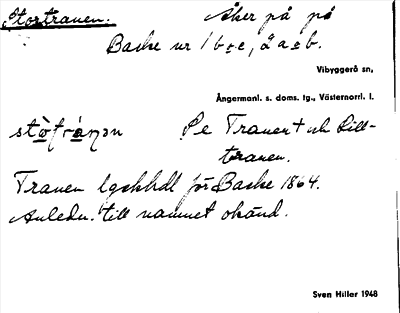 Stortranen.
Åker på på
Backe nr 1 b o c, 2 a o b.
Vibyggerå sn,
Ångermanl. s. doms. tg., Västernorrl. l.
Se Tranen + och Lill-
tranen.
Tranen lgskhdl för Backe 1864.
Anledn. till namnet okänd.
Sven Hiller 1948